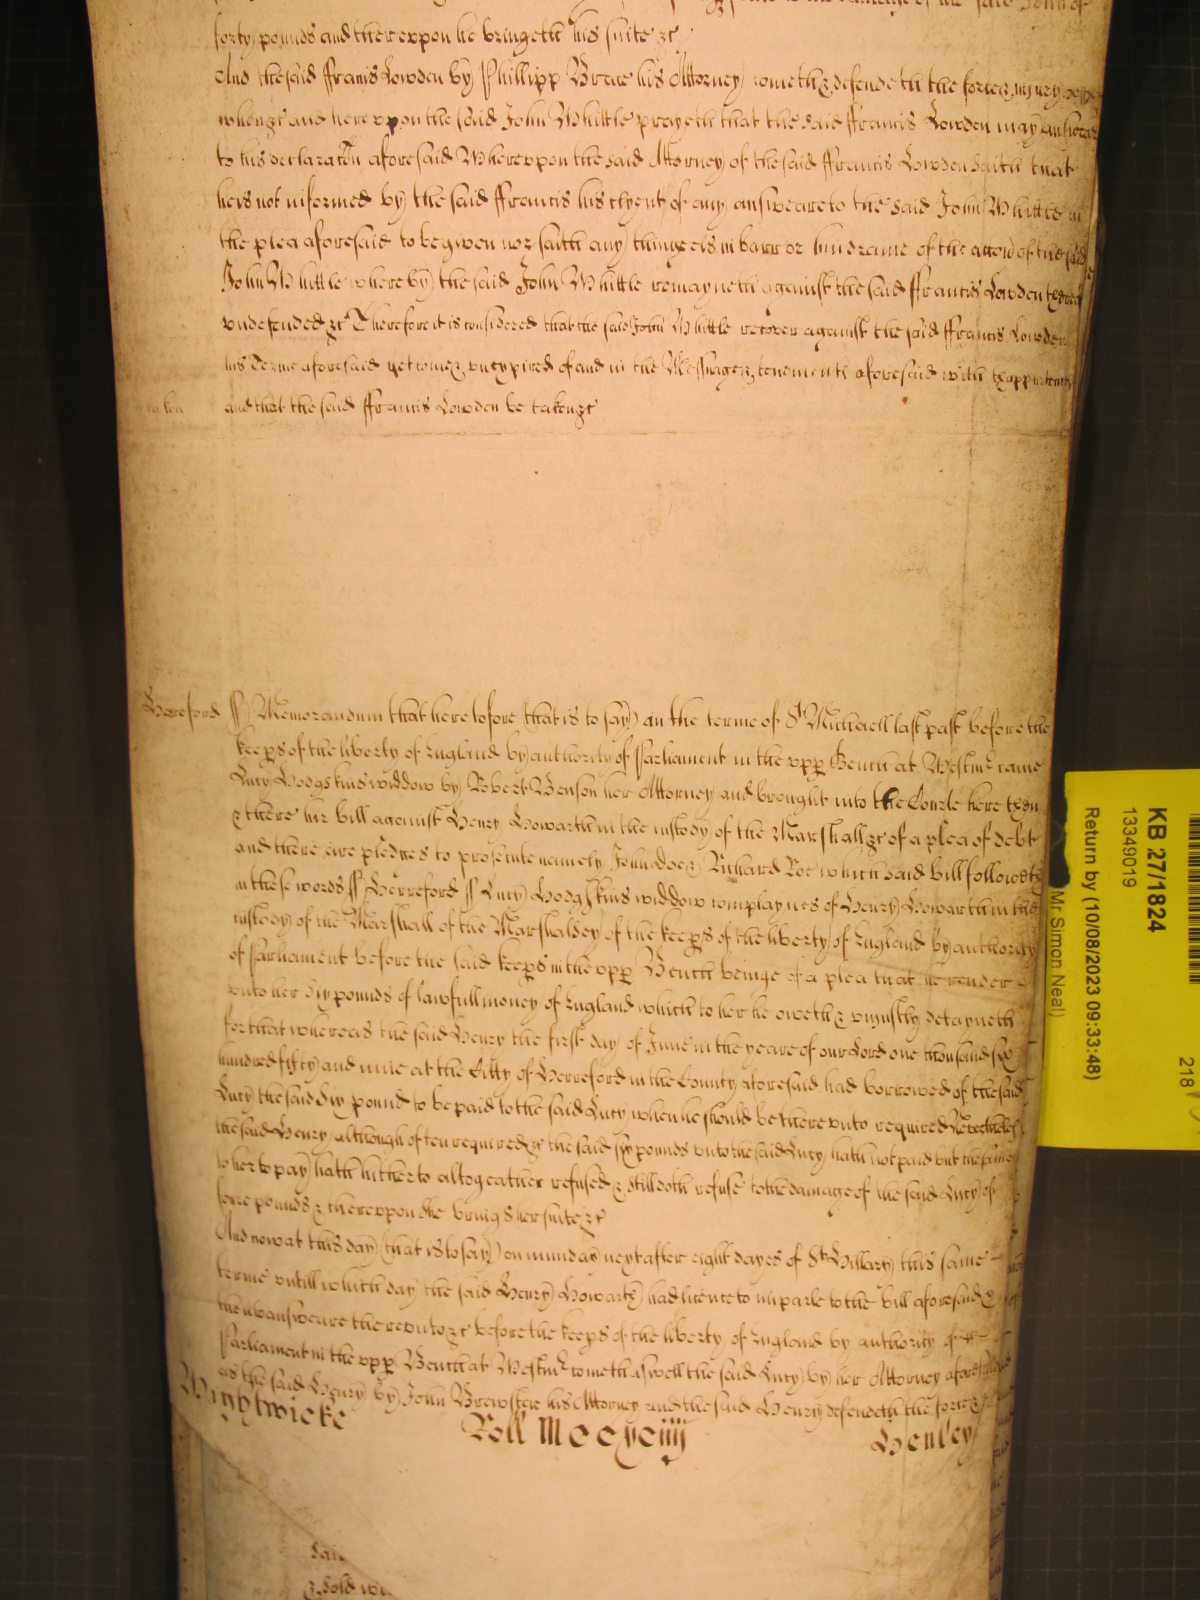 forty pounds and thereupon he bringeth his suite &c
And the said ffrancis Lowden by Phillipp Brace his Attorney cometh & defendeth the force & injury
when &c and hereupon the said John Whittle prayeth that the said ffrancis Lowden may answeare
to his declaraton aforesaid Whereupon the said Attorney of the said ffrancis Lowden saith that
he is not informed by the said ffrancis his clyent of any answeare to the said John Whittle in
the plea aforesaid to be given nor saith any thinge els in barr or hindrance of the accon of the said
John Whittle whereby the said John Whittle remayneth against the said ffrancis Lowden thereof
undefended &c Therefore it is considered that the said John Whittle recover against the said ffrancis Lowden
his Terme aforesaid yet to come & unexpired of and in the Messuage & tenements aforesaid with thappurtenncs
and that the said ffrancis Lowden be taken &c
taken
Hereford ss Memorandum that heretofore that is to say) in the terme of St Michaell last past before the
keeps of the liberty of England by authority of Parliament in the upp Bench at Westmr came
Lucy Hodgskins widdow by Robert Benson her Attorney and brought into the Courte here then
& there her bill against Henry Howarth in the custody of the Marshall &c of a plea of debt
and there are pledges to prosecute namely John Doe & Richard Roe which said bill followeth
in these words ss Herreford ss Lucy Hodgskins widdow complaynes of Henry Howarth in the
custody of the Marshall of the Marshalsey of the keeps of the liberty of England by authority
of Parliament before the said keeps in the upp Bench beinge of a plea that he render
unto her six pounds of lawfull money of England which to her he oweth & unjustly detayneth
for that whereas the said Henry the first day of June in the yeare of our Lord one thousand six
hundred fifty and nine at the Citty of Herreford in the County aforesaid had borrowed of the said
Lucy the said six pound to be paid to the said Lucy when he should be thereunto required Neverthelesse
the said Henry although often required &c the said six pounds unto the said Lucy hath not paid but the same
to her to pay hath hitherto altogeather refused & still doth refuse to the damage of the said Lucy of
foure pounds & thereupon she brings her suite &c
And now at this day (that is to say) on munday next after eight dayes of St Hillary this same
terme untill which day the said Henry Howarth had licence to imparle to the bill aforesaid &
then to answeare thereunto &c before the keeps of the liberty of England by authority of
Parliament in the upp Bench at Westmr cometh aswell the said Lucy by her Attorney aforesaid
as the said Henry by John Brewster his Attorney and the said Henry defendeth the force &
Wightwicke Roll Mccxciiij Henley
said
& hold
KB 27/1824
13349019
Return by (10/08/2023 09:33:48)
Mr Simon Neal)
218